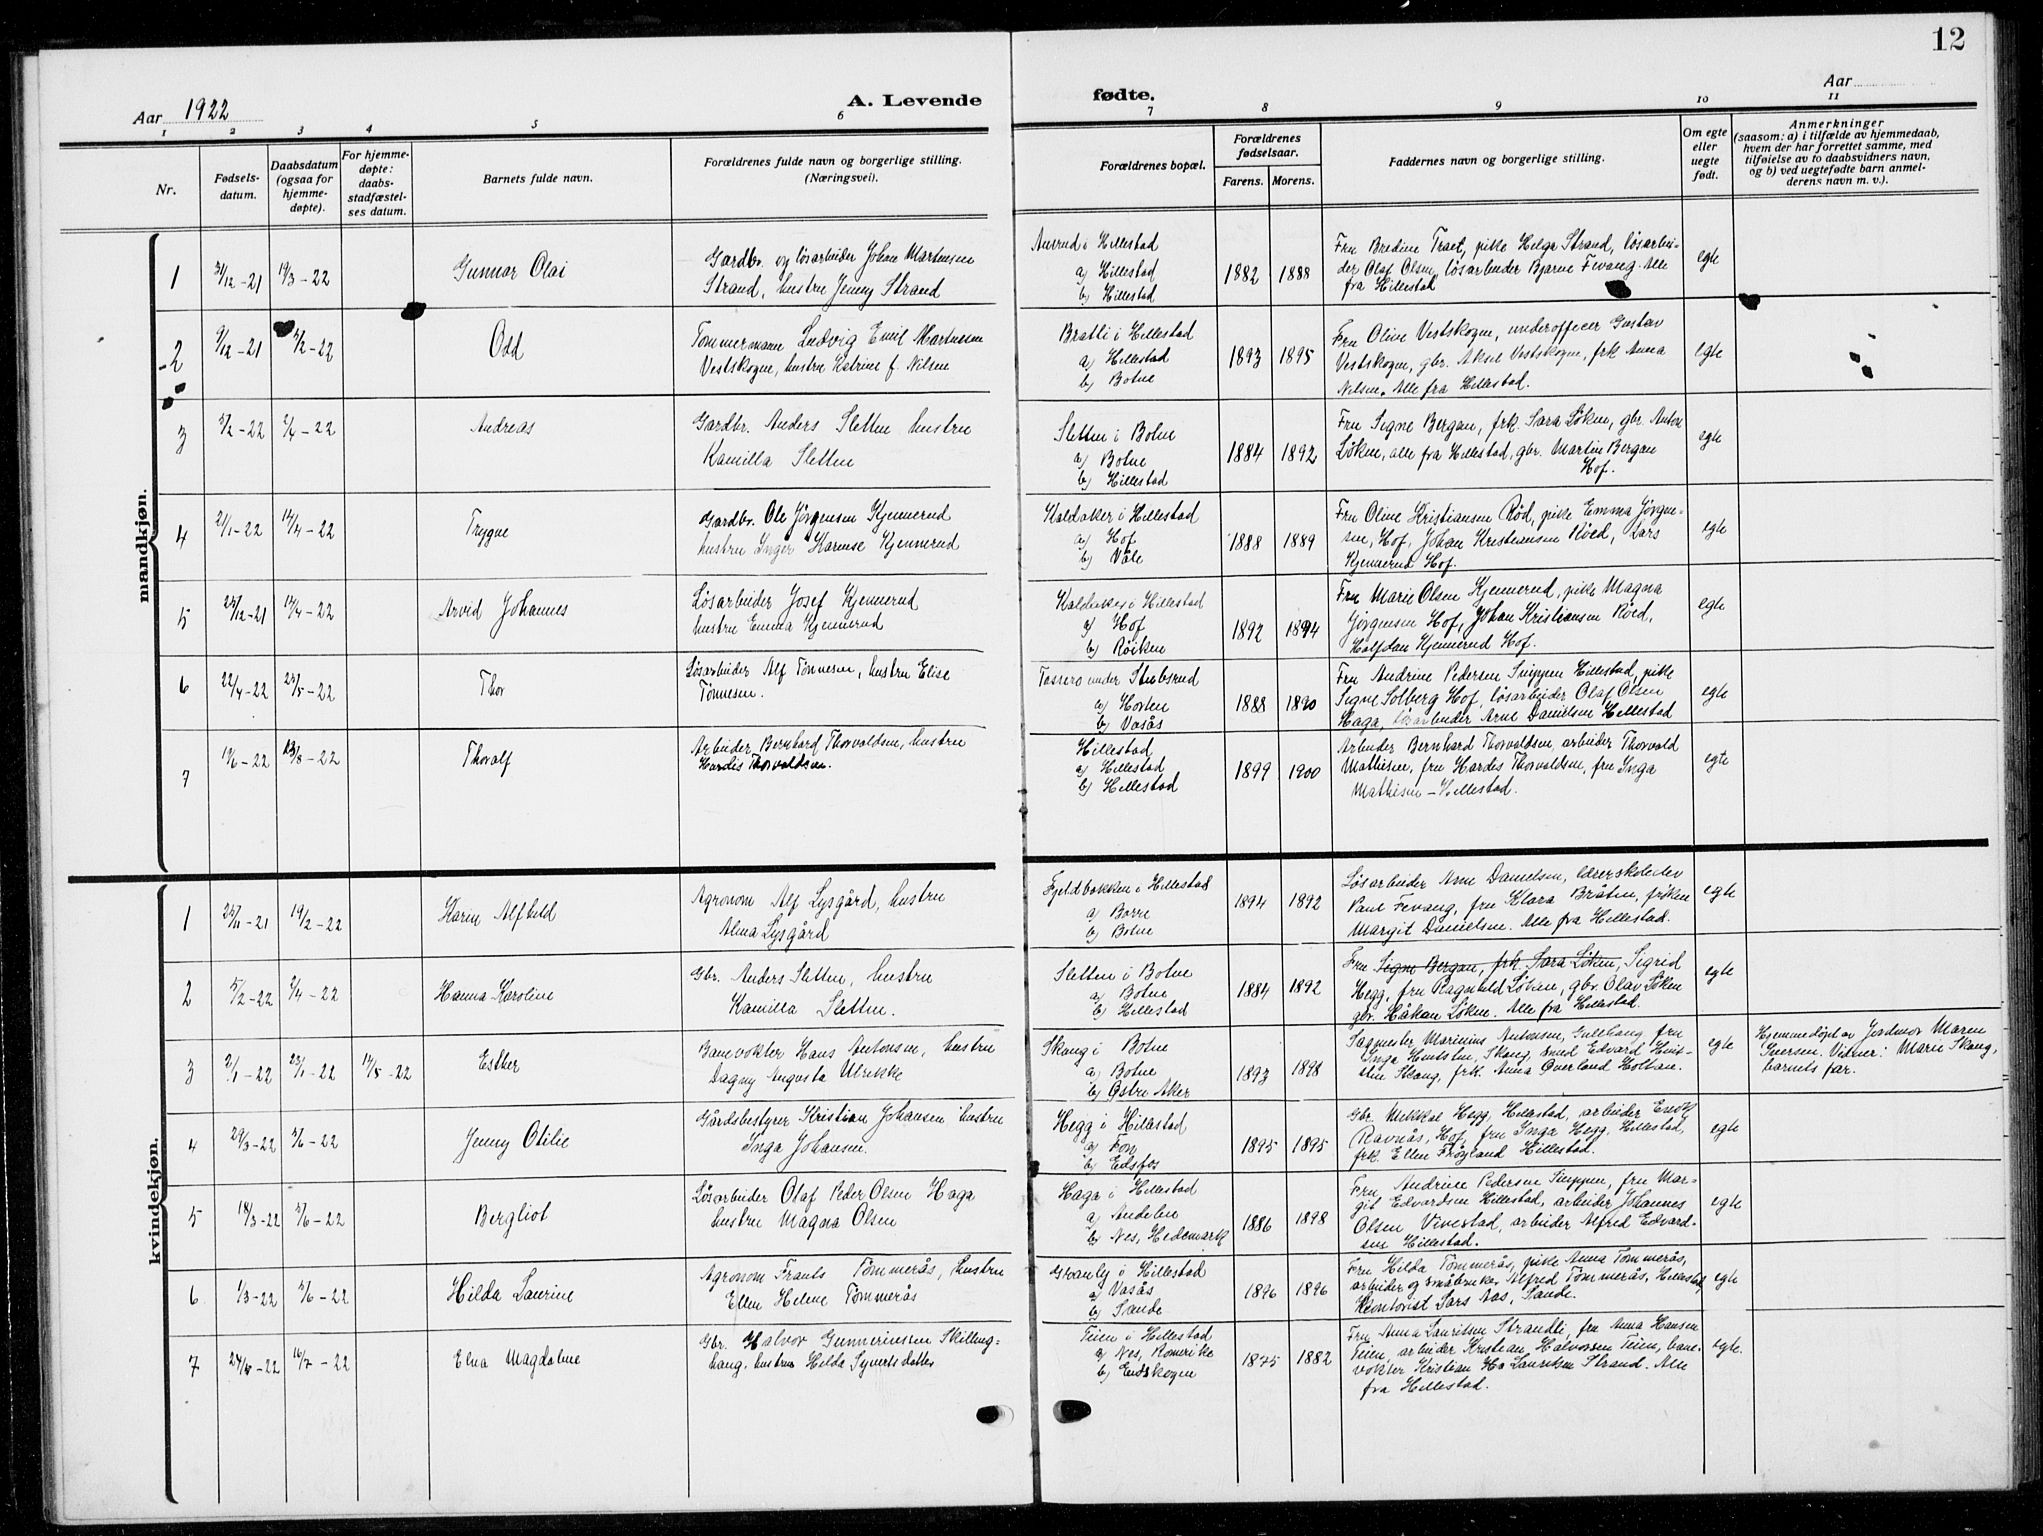 12
Aar 1922
A. Levende
fødte.
Aar
1 2 3 4 5 6 7 8 9 10 11
Nr.
Fødsels-
datum.
Daabsdatum
(ogsaa for
hjemme-
døpte).
For hjemme-
døpte:
daabs-
stadfæstel-
ses datum.
Barnets fulde navn.
Forældrenes fulde navn og borgerlige stilling.
(Næringsvei).
Forældrenes bopæl.
Forældrenes
fødselsaar.
Farens. Morens.
Faddernes navn og borgerlige stilling.
Om egte
eller
uegte
født.
Anmerkninger
(saasom: a) i tilfælde av hjemmedaab,
hvem der har forrettet samme, med
tilføielse av to daabsvidners navn,
og b) ved uegtefødte barn anmel-
derens navn m. v.).
mandkjøn.
1 31/12-21 19/3-22 Gunnar Olai
Gardbr. og løsarbeider Johan Martinsen
Strand, hustru Jenny Strand
i Hillestad
a) Hillestad
b) Hillestad
1882 1888
Fru Bredine Traet, pike Helga Strand, løsarbei-
der Olaf Olsen, løsarbeider Bjarne Fevang. Alle
fra Hillestad
egte
2 9/12-21 5/2-22 Odd
Tømmermann Ludvig Emil Martinsen
Vestskogen, hustru Katrine f. Nilsen
Bratli i Hillestad
a) Hillestad
b) Botne
1893 1895
Fru Olive Vestskogen, underofficer Gustav
Vestskogen, gbr. Aksel Vestskogen, frk Anna
Nilsen. Alle fra Hillestad.
egte
3 5/2-22 2/4-22 Andreas
Gardbr. Anders Sletten hustru
Kamilla Sletten
Sletten i Botne
a) Botne
b) Hillestad
1884 1892
Fru Signe Bergan, frk. Sara Løken, gbr. Anton
Løken, alle fra Hillestad, gbr. Martin Bergan
Hof.
egte
4 21/1-22 17/4-22 Trygve
Gardbr. Ole Jørgensen Kjennerud
hustru Inger Karense Kjennerud
Kaldaker i Hillestad
a) Hof
b) Våle
1888 1889
Fru Oline Kristiansen Rød, pike Emma Jørgen-
sen, Hof, Johan Kristiansen Røed, Lars
Kjennerud Hof.
egte
5 25/12-21 17/4-22 Arvid Johannes
Løsarbeider Josef Kjennerud
hustru Emma Kjennerud
Kaldaker i Hillestad
a) Hof
b) Røiken
1892 1894
Fru Marie Olsen Kjennerud, pike Magna
Jørgensen Hof, Johan Kristiansen Røed,
Halfdan Kjennerud Hof.
egte
6 22/4-22 25/5-22 Thor
Løsarbeider Alf Tønnesen, hustru Elise
Tønnesen.
under Stubsrud
a) Horten
b) Vasås
1888 1890
Fru Andrine Pedersen Snippen Hillestad, pike
Signe Solberg Hof, løsarbeider Olaf Olsen
Haga, løsarbeider Arne Danielsen Hillestad
egte
7 19/6-22 13/8-22 Thoralf
Arbeider Bernhard Thorvaldsen, hustru
Hardis Thorvaldsen.
Hillestad
a) Hillestad
b) Hillestad
1899 1900
Arbeider Bernhard Thorvaldsen, arbeider Thorvald
Mathisen, fru Hardis Thorvaldsen, fru Inga
Mathisen – Hillestad.
egte
kvindekjøn.
1 25/11-21 19/2-22 Karin Alfhild
Agronom Alf Lysgård, hustru
Alma Lysgård
Fjeldbakken i Hillestad
a) Borre
b) Botne
1894 1892
Løsarbeider Arne Danielsen, lærerskoleelev
Paul Fevang, fru Klara Bråten, frøken
Margit Danielsen. Alle fra Hillestad.
egte
2 5/2-22 2/4-22 Hanna Karoline
Gbr. Anders Sletten, hustru
Kamilla Sletten.
Sletten i Botne
a) Botne
b) Hillestad
1884 1892
Fru Signe Bergan, frk. Sara Løken, Sigrid
Hegg, fru Ragnhild Løken, gbr. Olav Løken
gbr. Håkon Løken. Alle fra Hillestad.
egte
3 2/1-22 23/1-22 14/5-22 Esther
Banevokter Hans Antonsen, hustru
Dagny Augusta Ulrikke
Skaug i Botne
a) Botne
b) Østre Aker
1893 1898
Sagmester Marinius Antonsen, Gullhaug, fru
Inga Skaug, smed Edvard
Skaug, frk. Anna Øverland Holtan.
egte
Hjemmedøpt av Jordmor Maren
Iversen. Vidner: Marie Skaug,
barnets far.
4 29/3-22 5/6-22 Jenny Otilie
Gårdsbestyrer Kristian Johansen hustru
Inga Johansen.
Hegg i Hillestad
a) Fon
b) Eidsfos
1895 1895
Gbr. Mikkal Hegg, Hillestad, arbeider
Ravnås, Hof, fru Inga Hegg, Hillestad,
frk. Ellen Frøyland Hillestad.
egte
5 18/3-22 5/6-22 Bergliot
Løsarbeider Olaf Peder Olsen Haga
hustru Magna Olsen
Haga i Hillestad
a) Andebu
b) Nes, Hedemark
1886 1898
Fru Andrine Pedersen Snippen, fru Mar-
git Edvardsen Hillestad, arbeider Johannes
Olsen Vivestad, arbeider Alfred Edvard-
sen Hillestad.
egte
6 1/3-22 5/6-22 Hilda Laurine
Agronom Frants Tømmerås, hustru
Ellen Helene Tømmerås
Granly i Hillestad
a) Vasås
b) Sande
1896 1896
Fru Hilda Tømmerås, pike Anna Tømmerås,
arbeider og småbruker Alfred Tømmerås, Hillestad
Kontorist Lars Aas, Sande.
egte
7 24/6-22 16/7-22 Elna Magdalene
Gbr. Halvor Gunneriussen Skilling-
haug, hustru Hilda Synertsdatter
Teien i Hillestad
a) Nes, Romerike
b) Eidskogen
1875 1882
Fru Anna Lauritsen Strandli, fru Anna Hansen
Teien, arbeider Kristian Halvorsen Teien, bane-
vokter Kristian Lauritsen Strand. Alle
fra Hillestad.
egte.